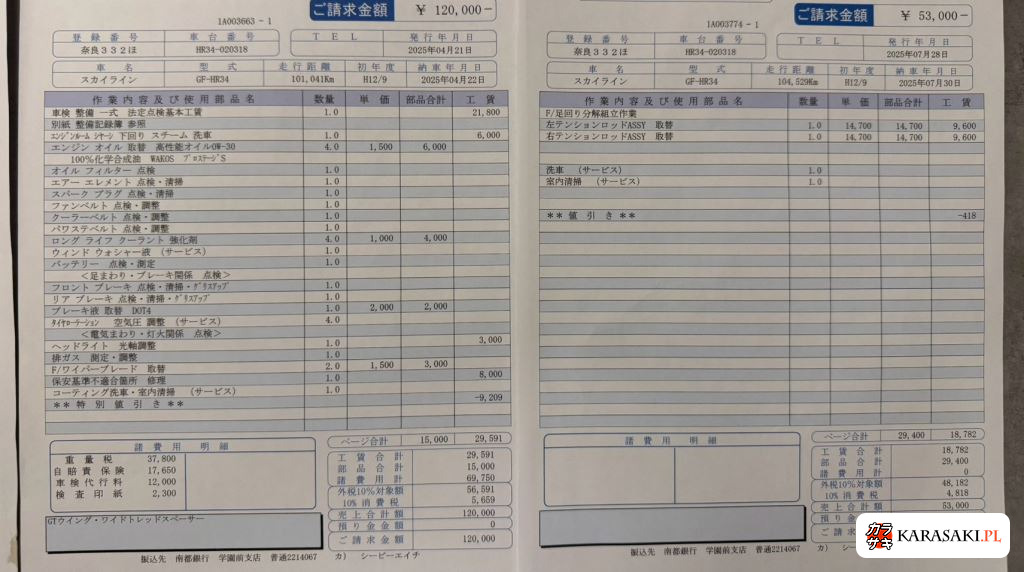 1A003663 - 1
ご請求金額 ¥ 120,000-
登録番号 車台番号 TEL 発行年月日
奈良332ほ HR34-020318 2025年04月21日
車名 型式 走行距離 初年度 納車年月日
スカイライン GF-HR34 101,041Km H12/9 2025年04月22日
作業内容及び使用部品名 数量 単価 部品合計 工賃
車検 整備 一式 法定点検基本工賃 1.0 21,800
別紙 整備記録簿 参照
エンジンルーム シャーシ 下回り スチーム 洗車 1.0 6,000
エンジン オイル 取替 高性能オイル0W-30 4.0 1,500 6,000
100%化学合成油 WAKOS プロステージS
オイル フィルター 点検 1.0
エアー エレメント 点検・清掃 1.0
スパーク プラグ 点検・清掃 1.0
ファンベルト 点検・調整 1.0
クーラーベルト 点検・調整 1.0
パワステベルト 点検・調整 1.0
ロング ライフ クーラント 強化剤 4.0 1,000 4,000
ウィンド ウォシャー液 (サービス) 1.0
バッテリー 点検・測定 1.0
<足まわり・ブレーキ関係 点検>
フロント ブレーキ 点検・清掃・グリスアップ 1.0
リア ブレーキ 点検・清掃・グリスアップ 1.0
ブレーキ液 取替 DOT4 1.0 2,000 2,000
タイヤローテーション 空気圧 調整 (サービス) 4.0
<電気まわり・灯火関係 点検>
ヘッドライト 光軸調整 1.0 3,000
排ガス 測定・調整 1.0
F/ワイパーブレード 取替 2.0 1,500 3,000
保安基準不適合箇所 修理 1.0 8,000
コーティング洗車・室内清掃 (サービス) 1.0
** 特別値引き ** -9,209
ページ合計 15,000 29,591
諸費用明細
重量税 37,800
自賠責保険 17,650
車検代行料 12,000
検査印紙 2,300
工賃合計 29,591
部品合計 15,000
諸費用計 69,750
外税10%対象額 56,591
10%消費税 5,659
売上合計額 120,000
預り金金額 0
ご請求金額 120,000
GTウイング・ワイドトレッドスペーサー
振込先 南都銀行 学園前支店 普通2214067 カ) シーピーエイチ
1A003774 - 1
ご請求金額 ¥ 53,000-
登録番号 車台番号 TEL 発行年月日
奈良332ほ HR34-020318 2025年07月28日
車名 型式 走行距離 初年度 納車年月日
スカイライン GF-HR34 104,529Km H12/9 2025年07月30日
作業内容及び使用部品名 数量 単価 部品合計 工賃
F/足回り分解組立作業
左テンションロッドASSY 取替 1.0 14,700 14,700 9,600
右テンションロッドASSY 取替 1.0 14,700 14,700 9,600
洗車 (サービス) 1.0
室内清掃 (サービス) 1.0
** 値引き ** -418
ページ合計 29,400 18,782
諸費用明細
工賃合計 18,782
部品合計 29,400
諸費用計 0
外税10%対象額 48,182
10%消費税 4,818
売上合計額 53,000
預り金
ご請求
振込先 南都銀行 学園前支店 普通2214067 カ) シーピ
カラサキ KARASAKI.PL